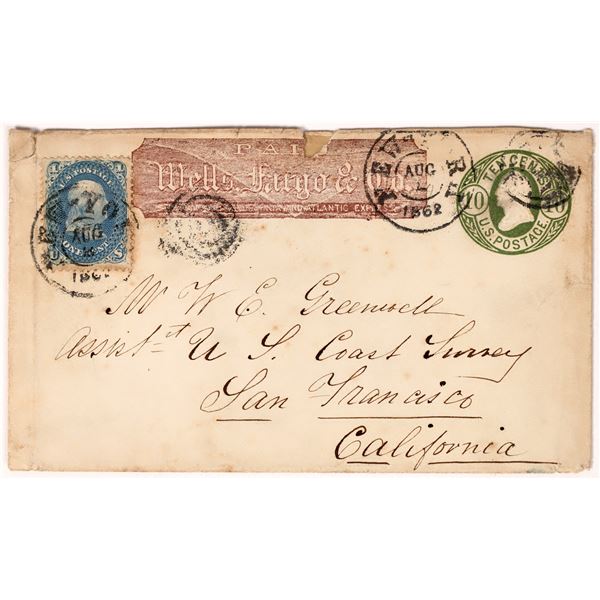 PAI
Wells, Fargo & Co.
AND ATLANTIC EXPRE
U.S. POSTAGE
ONE CENT
AUG
186
NEW YORK
AUG
1862
TEN CENTS
10 10
U.S. POSTAGE
Mr W E Greenwell
Assist-t U S Coast Survey
San Francisco
California